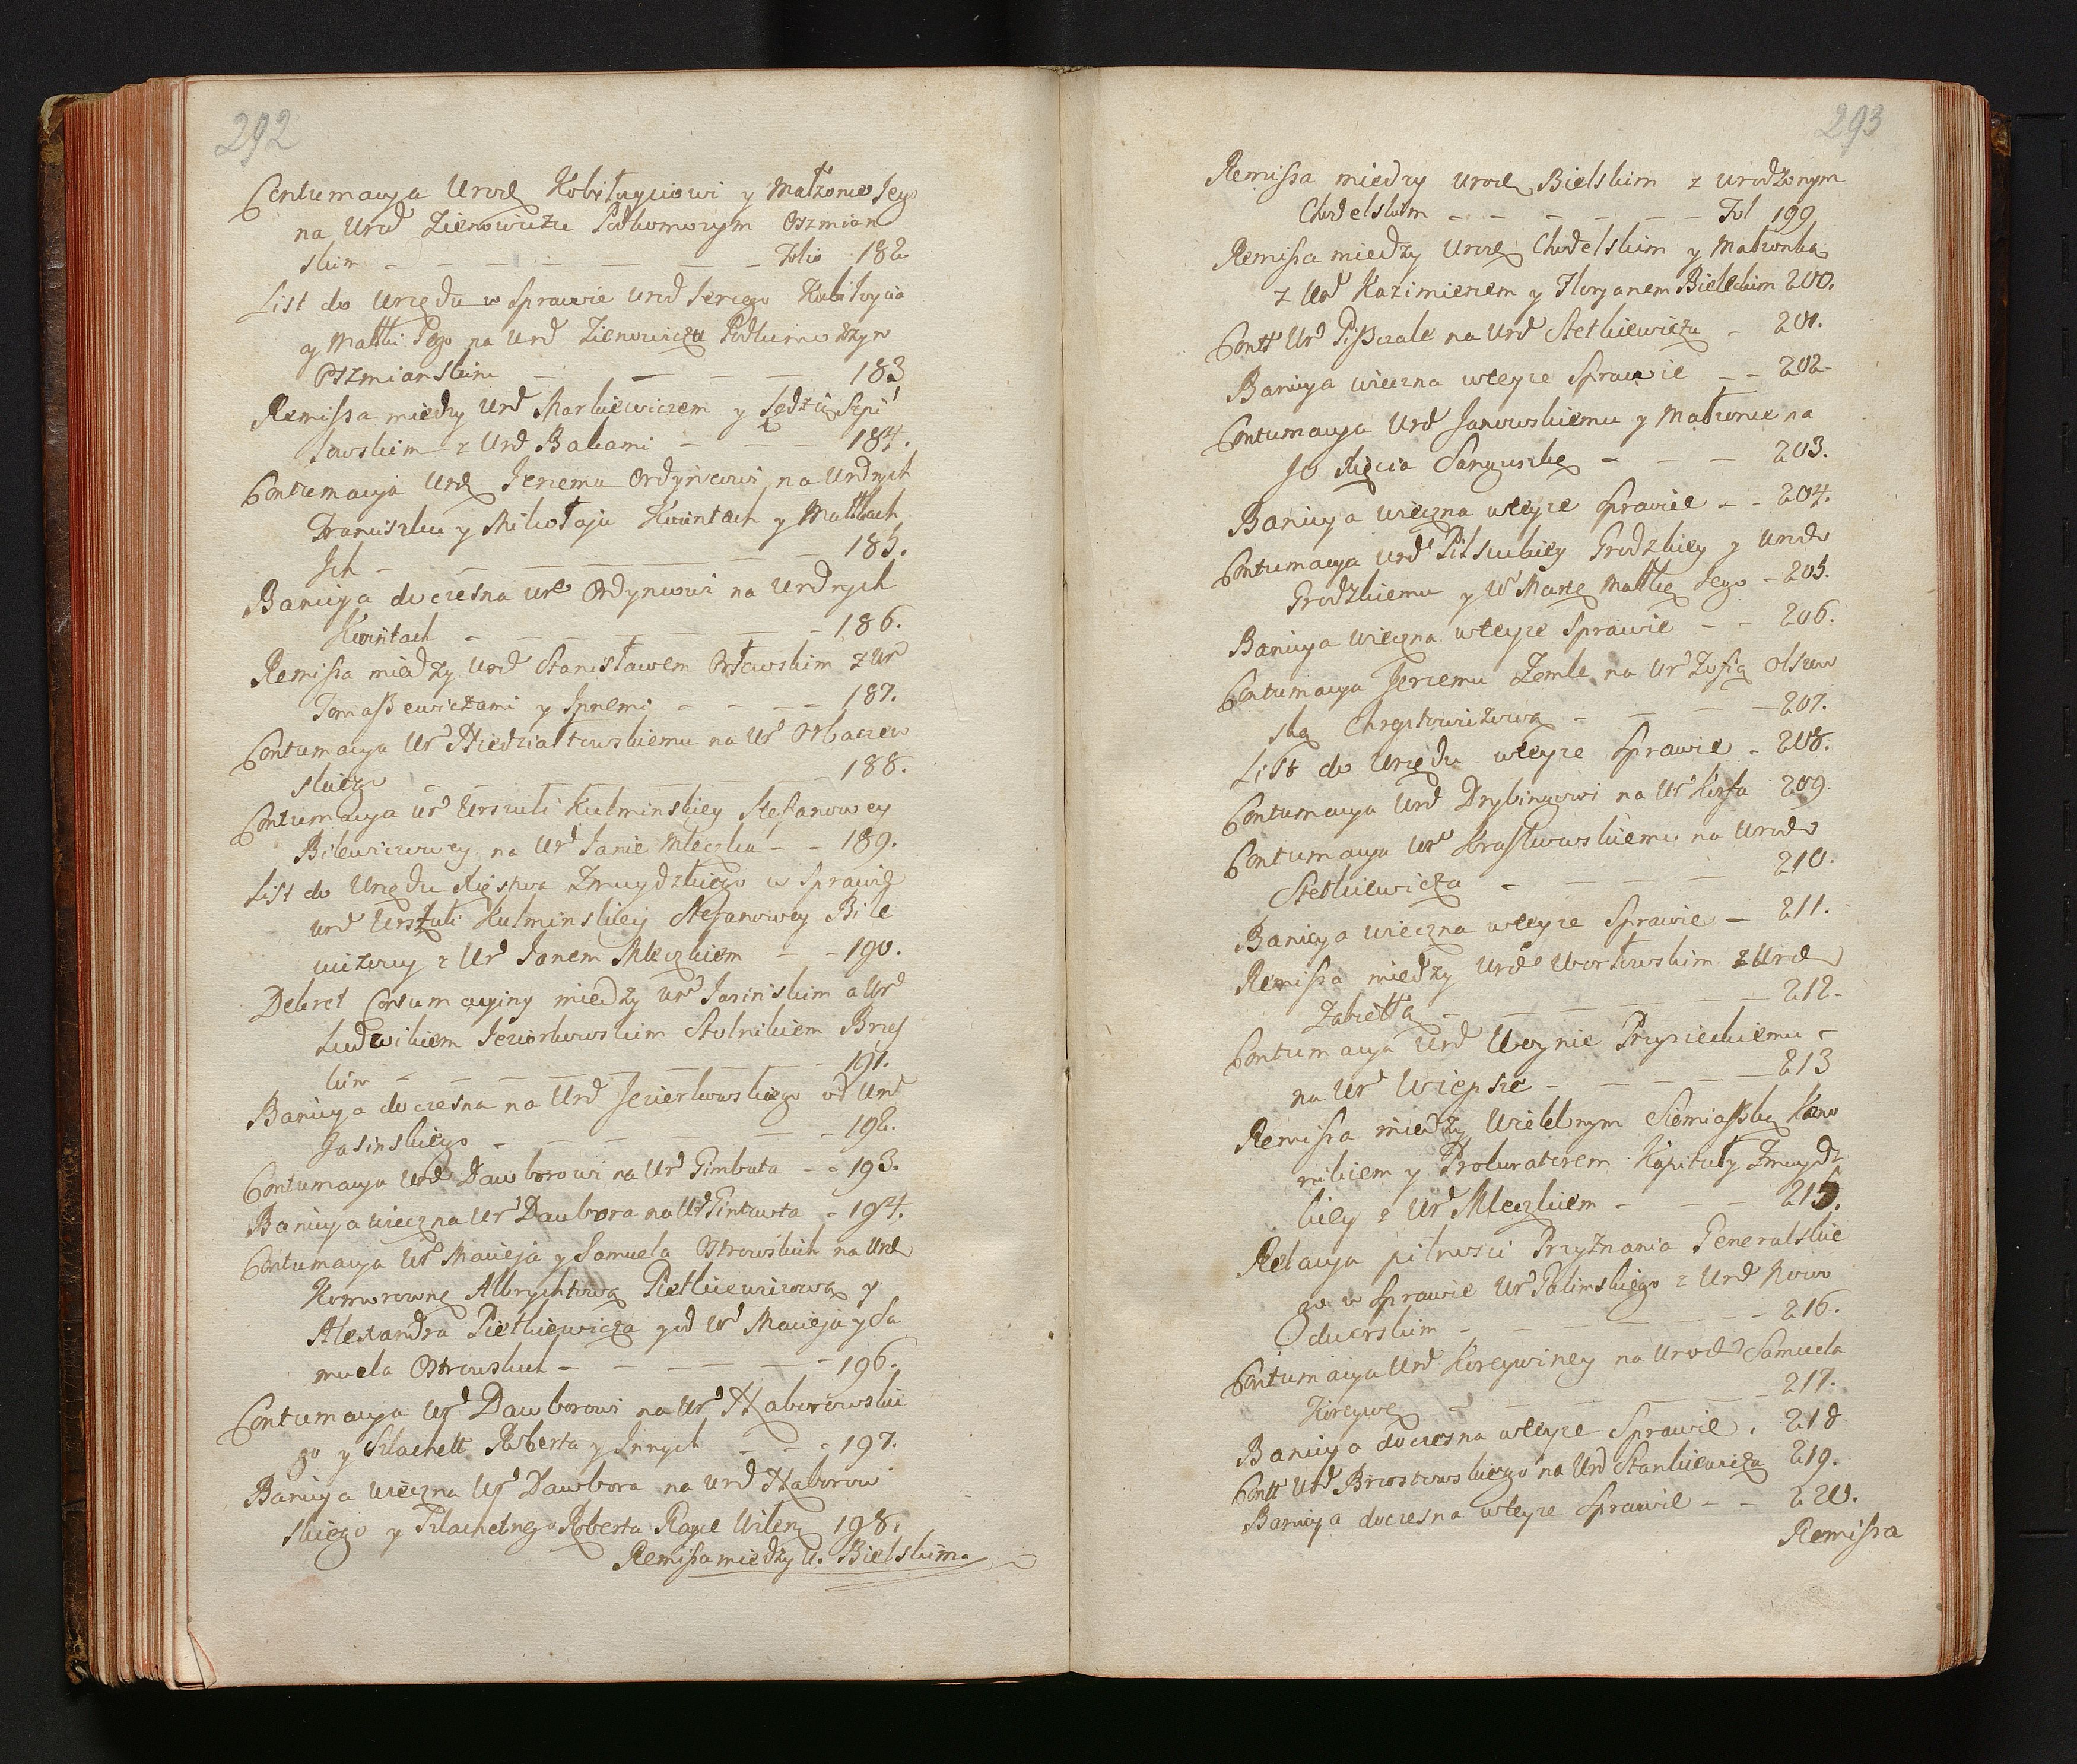 292
Contumacya Urod Kobiłyciowi y Małzonce Jego
na Urod Zienowiczu Podkomorzym Oszmian
skim – – – – – – – Folio 182
List do Urzędu w Sprawie Urod Jerzego Kobiłycia
y Małki Jego na Urod Zienowiczu Podkomorzym
Oszmianskim – – – – 183
Remissa między Urod Markiewiczem y Sędzią Szpi
lewskim z Urod Bakami – – – 184.
Contumacya Urod Jerzemu Ordyńcowi na Urodnych
Franciszku y Mikołaju Kwintach y Małkach
Jch – – – – – – – 185.
Banicya doczesna Urod Ordyncowi na Urodnych
Kwintach – – – – – – – 186.
Remissa miedzy Urod Stanisławem Orłowskim z Ur
Tomaszewiczami y Jnnemi – – – – 187.
Contumacya Ur Niedziałkowskiemu na Ur
skiego – – – – – – – 188.
Contumacya Ur Urszuli Kulminskiey Stefanowey
Bilewiczowey na Ur Janie Mleczku – – 189.
List do Urzędu Xięstwa Zmuydzkiego w Sprawie
Urod Urszuli Kulminskiey Stefanowey Bile
wiczowey z Ur Janem Mleczkiem – – 190.
Dekret Contumacyiny miedzy Ur Jasinskim a Ur
Ludwikiem Jeziorkowskim Stolnikiem Brzes
kim – – – – – – – 191.
Banicya doczesna na Urod Jezierkowskiego od Urod
Jasinskiego – – – – – – – 192.
Contumacya Urod Dawborowi na Ur Gimbuta – – 193.
Banicya wieczna Ur Dawbora na Ur Gintowta – 194.
Contumacya Ur Macieja y Samuela Ostrowskich na Urod
Komorownę Albrychtową Pietkiewiczową y
Alexandra Pietkiewicza y od Ur Macieja y Sa
muela Ostrowskich – – – – – – 196.
Contumacya Ur Dawborowi na Ur Naborowskie
go y Szlachett Roberta y Jnnych – – – 197.
Banicya wieczna Ur Dawbora na Urod Naborow
skiego y Szlachetnego Roberta Wilen 198.
Remissa miedzy U. Bielskim.
293
Remissa miedzy Urod Bielskim z Urodzonym
Chodelskim – – – – – – – Fol 199.
Remissa miedzy Urod Chodelskim y Małzonką
z Urod Kazimierzem y Floryanem Bielskim 200.
Contt Ur Piszczale na Urod Stetkiewicza – 201.
Banicya wieczna wteyze Sprawie – – 202.
Contumacya Urod Janowskiemu y Małzonce na
JO Xięcia Sanguszkę – – – 203.
Banicya wieczna wteyze Sprawie – – 204.
Contumacya Urod Pilsuckiey Grodzkiey y Urod
Grodzkiemu y W Marię Małkę Jego – 205.
Banicya wieczna wteyze Sprawie – – 206.
Contumacya Jerzemu Zemle na Ur Zofią Olszew
ską Chreptowiczową – – – – 207.
List do Urzędu wteyze Sprawie – 208.
Contumacya Urod Drybinczowi na Ur 209.
Contumacya Ur Kraskowskiemu na Urod
Stetkiewicza – – – – – 210.
Banicya wieczna wteyze Sprawie – 211.
Remissa miedzy Urod Worłowskim z Urod
Zabiełłą – – – – – – 212.
Contumacya Urod Woynie Przysieckiemu
na Ur Wiepsze – – – – – 213
Remissa miedzy Wielebnym Siemiaszką Kano
nikiem y Prokuratorem Kapituły Zmuydz
kiey z Ur Mleczkiem – – – 215.
Relacya pilnosci Przyznania Generalskie
go w Sprawie Ur Palimskiego z Urod Nowo
dworskim – – – – – – 216.
Contumacya Urod Korzywiney na Urod Samuela
Korzywę – – – – – – 217.
Banicya doczesna wteyze Sprawie. 218
Contt Urod Brzostowskiego na Urod Stankiewicza 219.
Banicya doczesna wteyze Sprawie – – 220.
Remissa